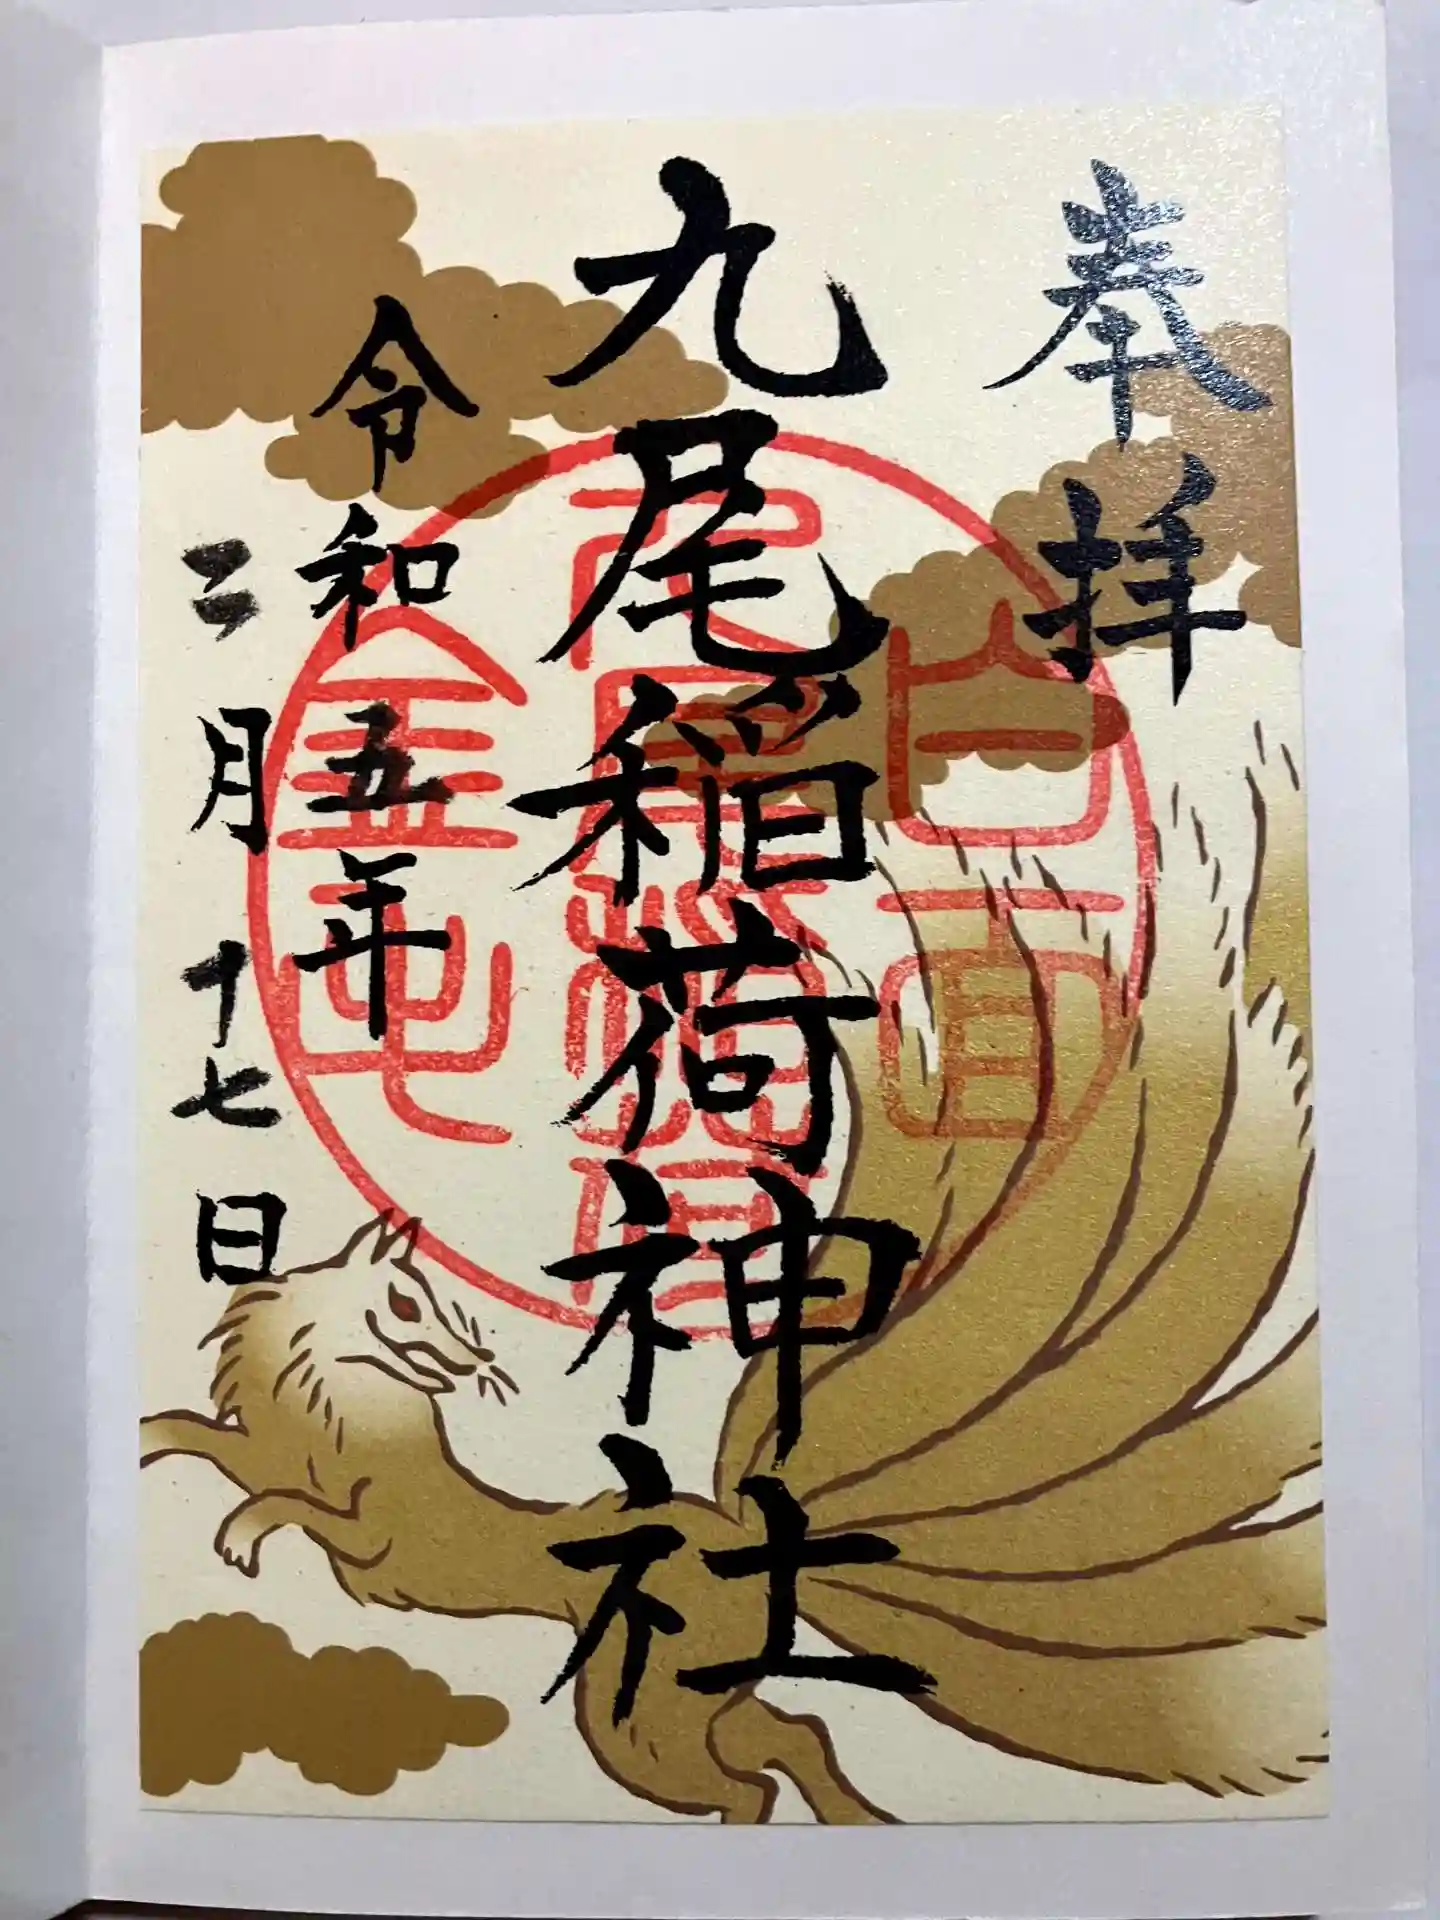 奉拝
九尾稲荷神社
令和五年
二月十七日
白面
九尾稲荷
金毛